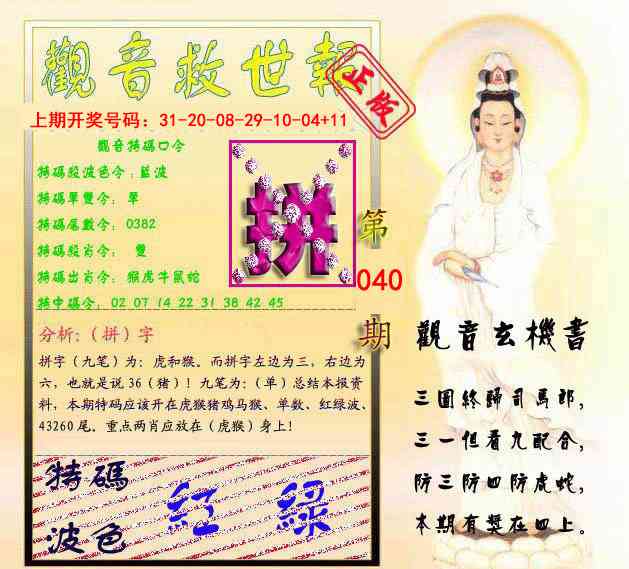 觀音救世報
正版
上期开奖号码：31-20-08-29-10-04+11
觀音特碼口令
特碼段波色令：藍波
特碼單雙令：單
特碼尾數令：0382
特碼段肖令：雙
特碼出肖令：猴虎牛鼠蛇
特中碼令：02 07 14 22 31 38 42 45
拼
第
040
期
分析：（拼）字
拼字（九笔）为：虎和猴。而拼字左边为三，右边为
六，也就是说36（猪）！九笔为：（单）总结本报资
料，本期特码应该开在虎猴猪鸡马猴、单数、红绿波、
43260尾。重点两肖应放在（虎猴）身上！
特碼
波色
紅 綠
觀音玄機書
三國終歸司馬郎，
三一但看九配合，
防三防四防虎蛇，
本期有獎在四上。